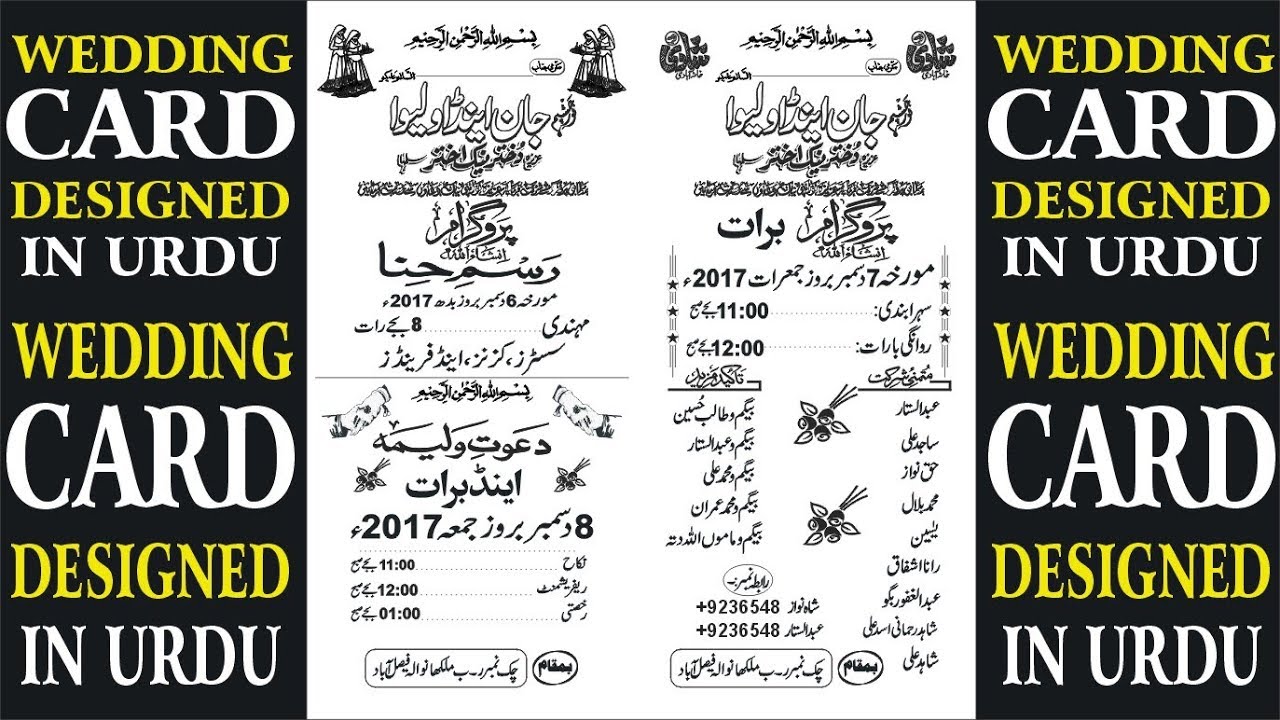 WEDDING
CARD
DESIGNED
IN URDU
WEDDING
CARD
DESIGNED
IN URDU
بسم اللہ الرحمن الرحیم
مکرمی جناب
السلام علیکم
جان اینڈ اولیوا
دختر نیک اختر
پروگرام
انشاءاللہ
رسمِ حنا
مورخہ 6 دسمبر بروز بدھ 2017ء
مہندی 8 بجے رات
سسٹرز، کزنز، اینڈ فرینڈز
بسم اللہ الرحمن الرحیم
دعوتِ ولیمہ
اینڈ برات
8 دسمبر بروز جمعہ 2017ء
نکاح 11:00 بجے صبح
ریفریشمنٹ 12:00 بجے صبح
رخصتی 01:00 بجے صبح
بمقام چک نمبر ر۔ب ملکھانوالہ فیصل آباد
بسم اللہ الرحمن الرحیم
شادی
خانہ آبادی
مکرمی جناب
السلام علیکم
جان اینڈ اولیوا
دختر نیک اختر
پروگرام برات
انشاءاللہ
مورخہ 7 دسمبر بروز جمعرات 2017ء
سہرا بندی: 11:00 بجے صبح
روانگی بارات: 12:00 بجے صبح
متمنی شرکت
عبدالستار
ساجد علی
حق نواز
محمد بلال
یٰسین
رانا اشفاق
عبدالغفور بگو
شاہد رحمانی اسد علی
شاہد علی
تاکید مزید
بیگم و طالب حسین
بیگم و عبدالستار
بیگم و محمد علی
بیگم و محمد عمران
بیگم و ماموں اللہ دتہ
رابطہ نمبر:۔
شاہ نواز +9236548
عبدالستار +9236548
بمقام چک نمبر ر۔ب ملکھانوالہ فیصل آباد
WEDDING
CARD
DESIGNED
IN URDU
WEDDING
CARD
DESIGNED
IN URDU